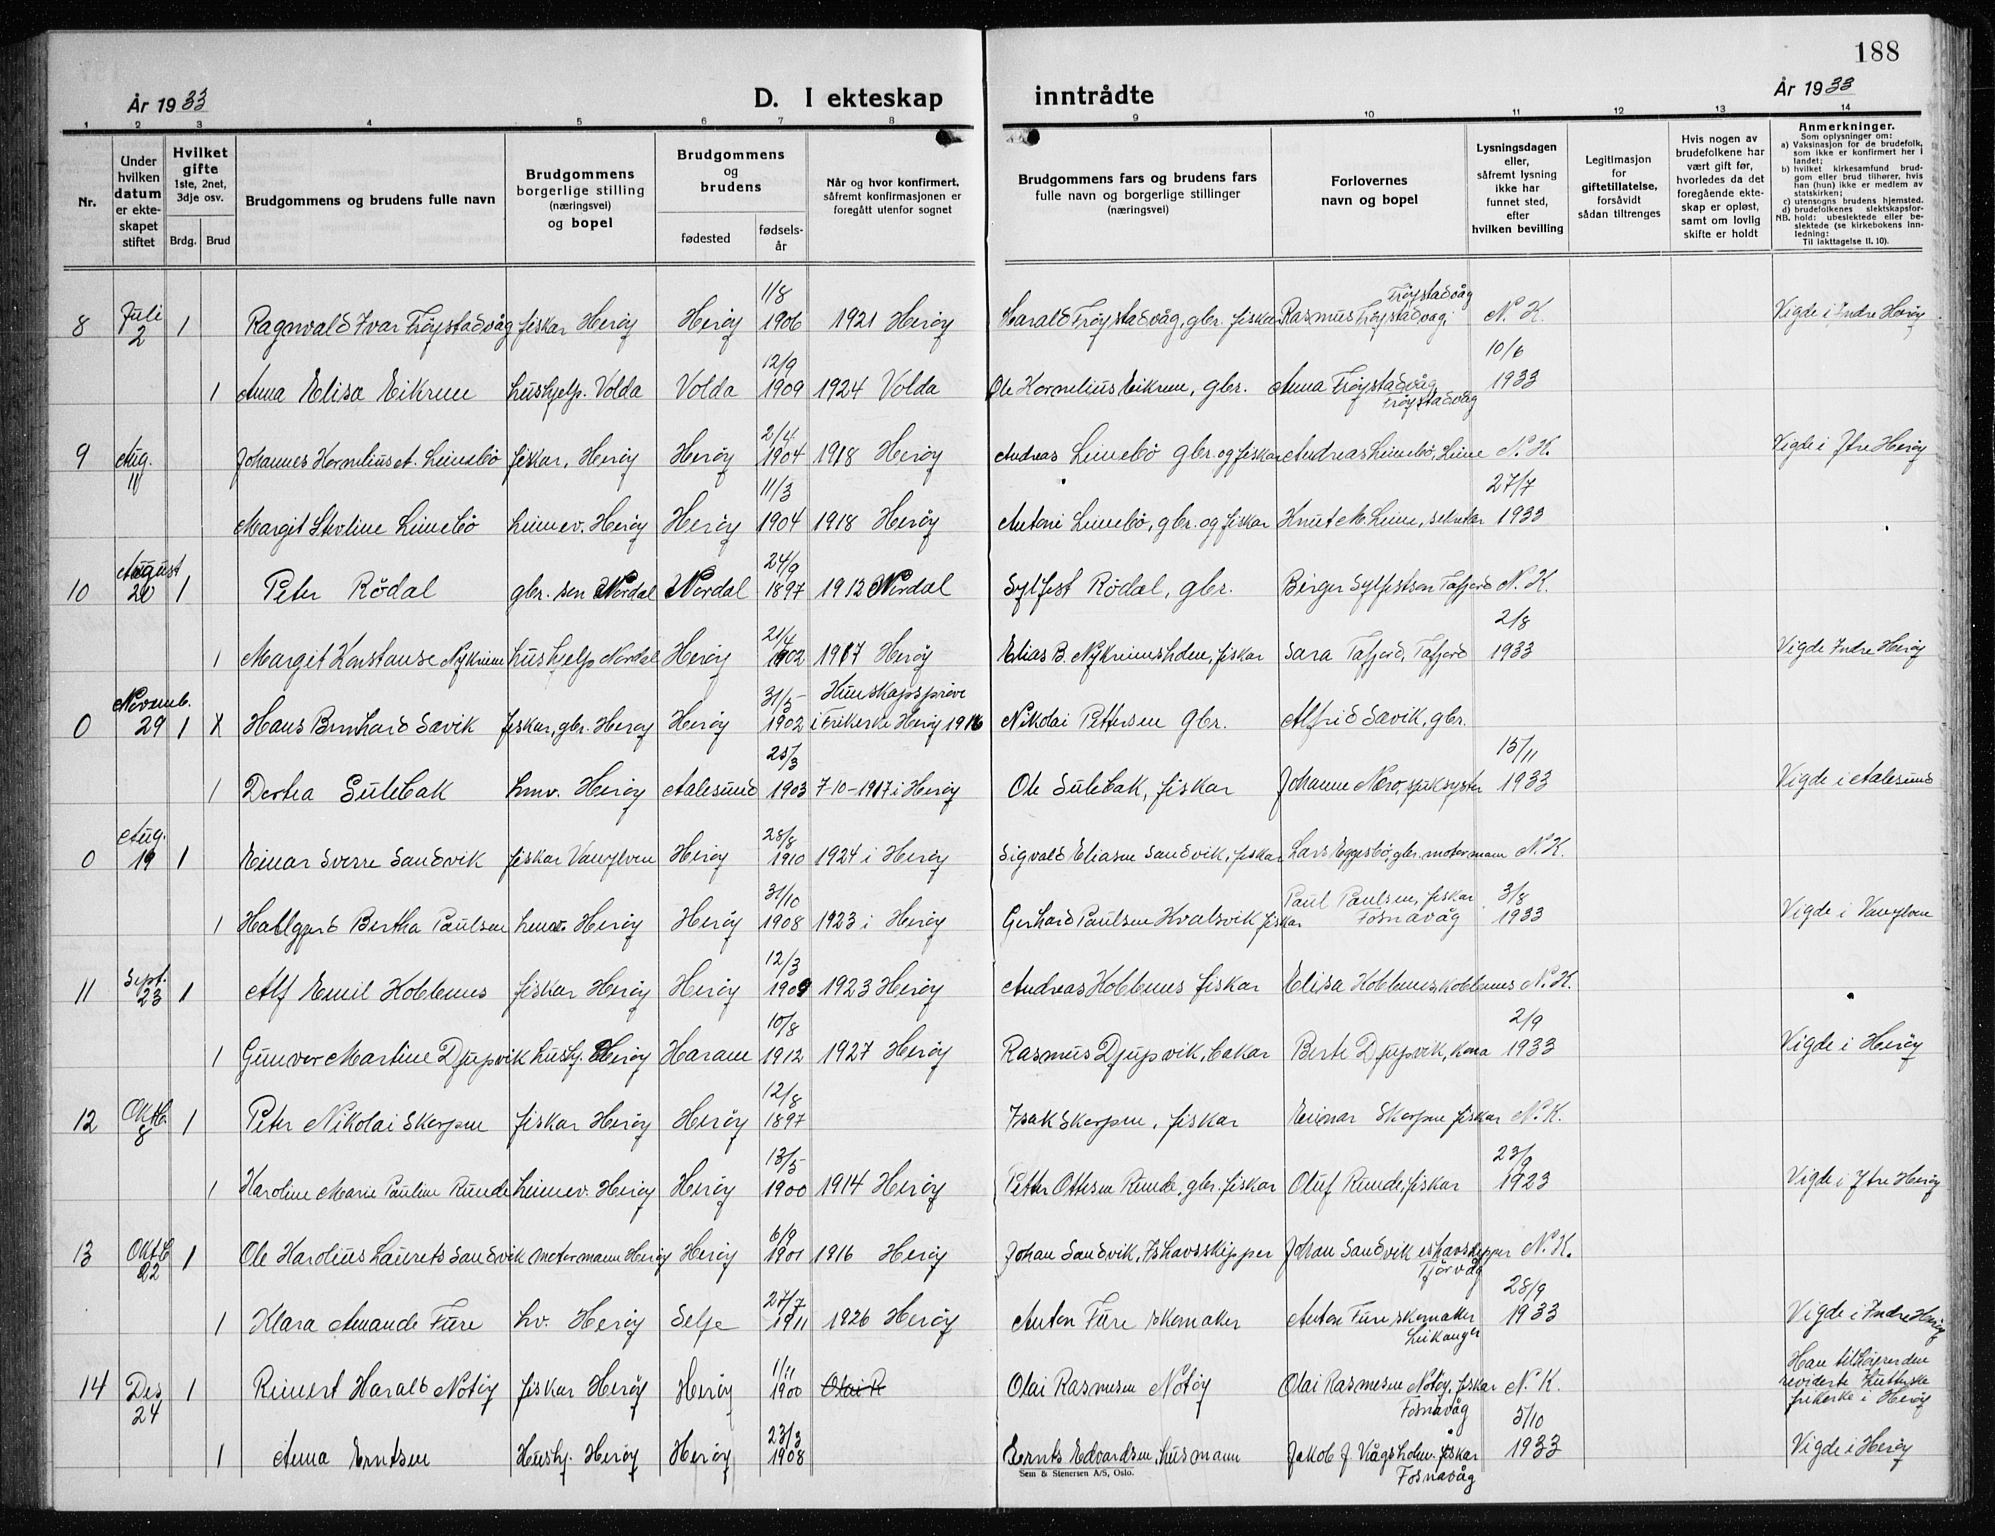 188
År 1933
D. I ekteskap inntrådte
År 1933
1 2 3 4 5 6 7 8 9 10 11 12 13 14
Nr.
Under hvilken datum er ekteskapet stiftet
Hvilket gifte 1ste, 2net, 3dje osv.
Brdg. Brud
Brudgommens og brudens fulle navn
Brudgommens borgerlige stilling (næringsvei) og bopel
Brudgommens og brudens
fødested
fødselsår
Når og hvor konfirmert, såfremt konfirmasjonen er foregått utenfor sognet
Brudgommens fars og brudens fars fulle navn og borgerlige stillinger (næringsvei)
Forlovernes navn og bopel
Lysningsdagen eller, såfremt lysning ikke har funnet sted, efter hvilken bevilling
Legitimasjon for giftetillatelse, forsåvidt sådan tiltrenges
Hvis nogen av brudefolkene har vært gift før, hvorledes da det foregående ekteskap er opløst, samt om lovlig skifte er holdt
Anmerkninger.
Som oplysninger om:
a) Vaksinasjon for de brudefolk, som ikke er konfirmert her i landet;
b) hvilket kirkesamfund brudgom eller brud tilhører, hvis han (hun) ikke er medlem av statskirken;
c) utensogns brudens hjemsted.
d) brudefolkenes slektskapsforhold: ubeslektede eller beslektede (se kirkebokens innledning:
NB. Til iakttagelse II. 10).
8 Juli 2 1 Ragnvald Ivar Frøystadvåg fiskar Herøy Herøy 11/8 1906 1921 Herøy Harald Frøystadvåg, gbr. fiskar Rasmus Frøystadvåg, Frøystadvåg N. K. Vigde i Indre Herøy
1 Anna Elisa Eikrem hushjelp. Volda Volda 12/9 1909 1924 Volda Ole Kornelius Eikrem, gbr. Anna Frøystadvåg Frøystadvåg 10/6 1933
9 Aug. 11 Johannes Kornelius A. Leinebø fiskar, Herøy Herøy 2/4 1904 1918 Herøy Andreas Leinebø gbr. og fiskar Andreas Leinebø, Leine N. K. Vigde i Ytre Herøy
Margit Stvline Leinebø heimev. Herøy Herøy 11/3 1904 1918 Herøy Antoni Leinebø, gbr. og fiskar Knut M. Leine, sekretær 27/7 1933
10 August 20 1 Peter Rødal gbr. sen Nordal Nordal 24/9 1897 1912 Nordal Sylfest Rødal, gbr. Birger Sylfestsen Tafjord N. K.
1 Margit Konstanse Nykreim hushjelp Nordal Herøy 21/4 1902 1917 Herøy Elias B. Nykreimsholm, fiskar Sara Tafjord, Tafjord 2/8 1933 Vigde Indre Herøy
0 Novemb. 29 1 X Hans Bernhard Savik fiskar, gbr. Herøy Herøy 31/5 1902 Kunskapsprøve i Frikerke Herøy 1916 Nikolai Pettersen gbr. Alfrid Savik, gbr.
1 Dortea Sulebak hmv. Herøy Aalesund 25/3 1903 7-10-1917 i Herøy Ole Sulebak, fiskar Johanne Nero, sjuksyster 15/11 1933 Vigde i Aalesund
0 Aug. 19 1 Einar Sverre Sandvik fiskar Vanylven Herøy 28/8 1910 1924 i Herøy Sigvald Eliasen Sandvik, fiskar Lars Eggesbø gbr. motormann N. K.
1 Hallgjerd Bertha Paulsen hmv. Herøy Herøy 31/10 1908 1923 i Herøy Gerhard Paulsen Kvalsvik fiskar Paul Paulsen, fiskar Fosnavåg 3/8 1933 Vigde i Vanylven
11 Sept. 23 1 Alf Emil Koblenes fiskar Herøy Herøy 12/3 1909 1923 Herøy Andreas Koblenes fiskar Elisa Koblenes koblenes N. K.
1 Gunvor Martine Djupvik hushj. Herøy Haram 10/8 1912 1927 Herøy Rasmus Djupvik, bakar Berte Djupvik, kona 2/9 1933 Vigde i Herøy
12 Oktb. 8 1 Peter Nikolai Skorpen fiskar Herøy Herøy 12/8 1897 Isak Skorpen, fiskar Einar Skorpen fiskar N. K.
1 Karoline Marie Pauline Runde heimev. Herøy Herøy 13/5 1900 1914 Herøy Petter Ottesen Runde, gbr. fiskar Oluf Runde, fiskar 23/9 1923 Vigde i Ytre Herøy
13 Oktb 22 1 Ole Karolius Laurets Sandvik motormann Herøy Herøy 6/9 1901 1916 Herøy Johan Sandvik, Ishavsskipper Johan Sandvik ishavskipper Tjørvåg N. K.
1 Klara Amanda Füre hv. Herøy Selje 27/7 1911 1926 Herøy Anton Füre skomaker Anton Füre skomaker Leikanger 28/9 1933 Vigde i Indre Herøy
14 Des 24 1 Reinert Harald Notøy fiskar Herøy Herøy 1/11 1900 Olai R Olai Rasmusen Notøy Olai Rasmusen Notøy, fiskar Fosnavåg N. K. Han tilhøyrer den reviderte lutterske frikerke i Herøy
1 Anna Erntsen Hushj. Herøy Herøy 23/3 1908 Ernts Edvardsen, husmann Jakob J. Vågsholm fiskar Fosnavåg 5/10 1933 Vigde i Herøy
Sem & Stenersen A/S, Oslo.